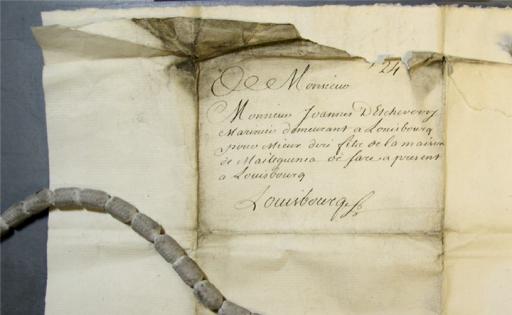 124
A Monsieur
Monsieur Joannes D'Etcheverry
Marinier demeurant a Louisbourg
pour Mieux dire fils de la maison
de Maileguinea de fare a present
a Louisbourg
Louisbourg